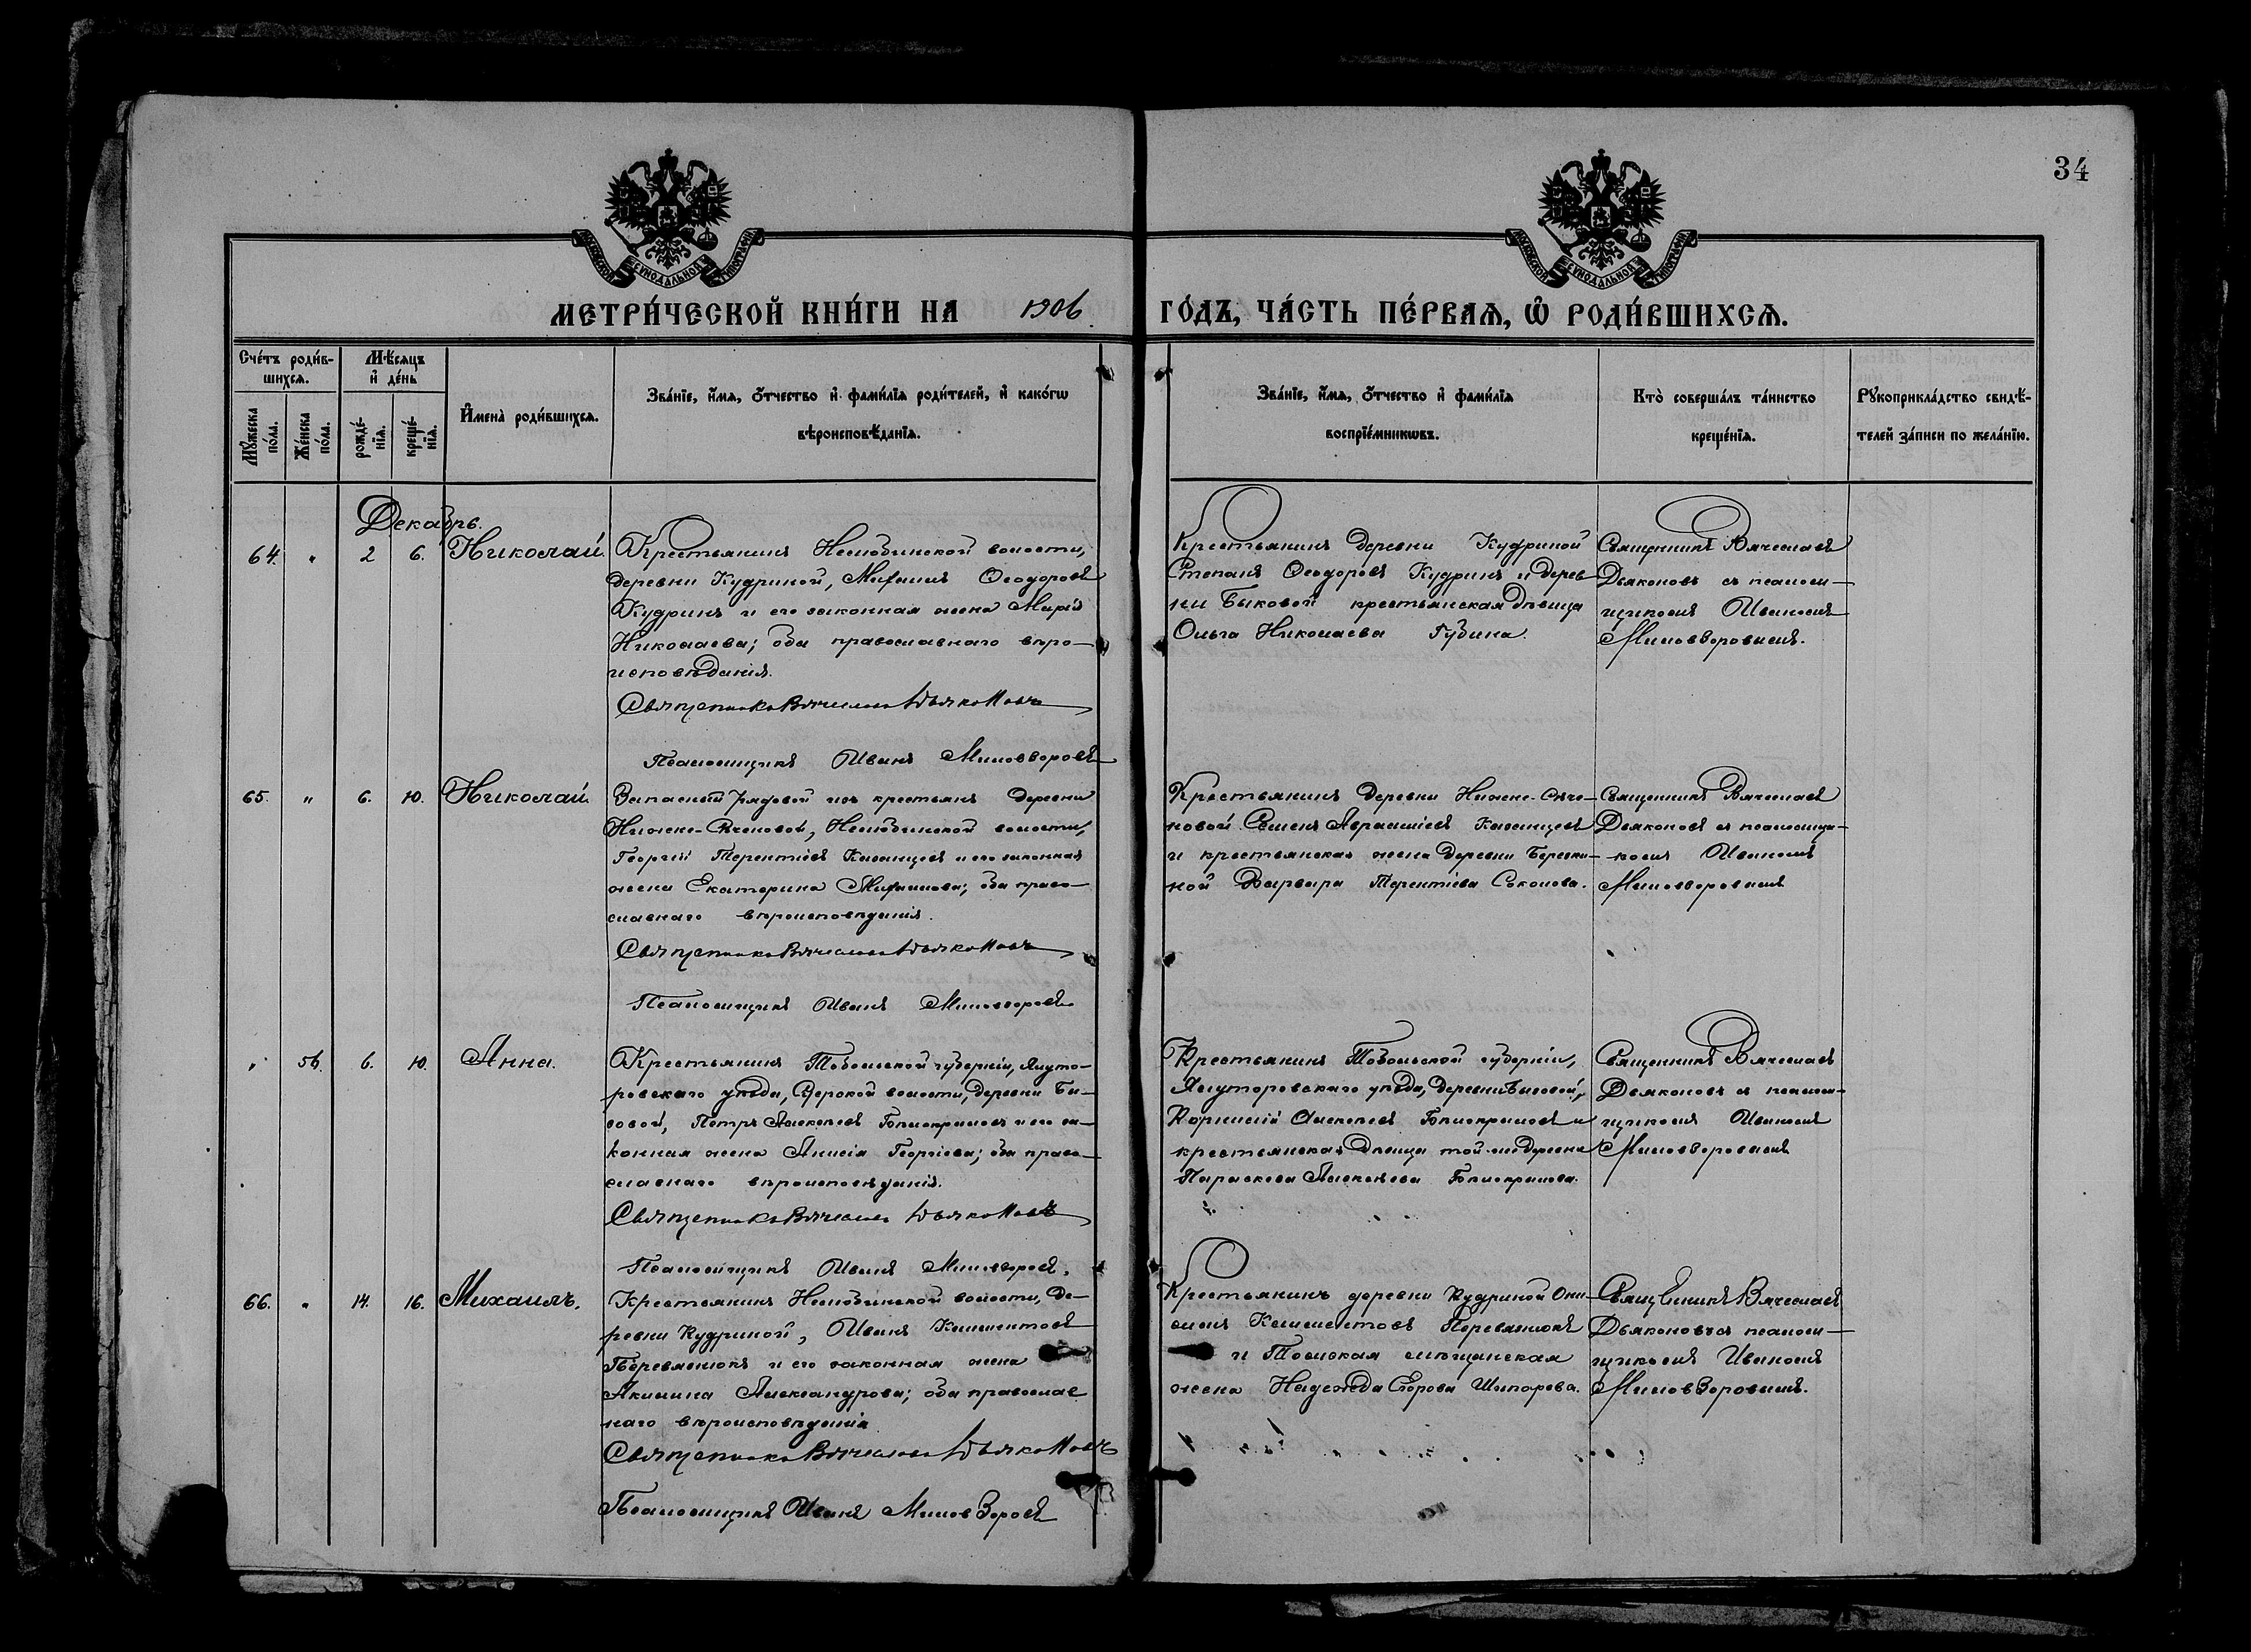 34
МОСКОВСКОЙ СѴНОДАЛЬНОЙ ТИПОГРАФІИ
МОСКОВСКОЙ СѴНОДАЛЬНОЙ ТИПОГРАФІИ
МЕТРИ́ЧЕСКОЙ КНИ́ГИ НА 1906 ГО́ДЪ, ЧА́СТЬ ПЕ́РВАѦ, Ѡ҆ РОДИ́ВШИХСѦ.
Сче́тъ роди́в-
шихсѧ.
Мѣ́сѧцъ
и҆ де́нь
Мꙋ́жеска по́ла.
Же́нска по́ла.
рожде́-
нїѧ.
креще́-
нїѧ.
И҆мена̀ роди́вшихсѧ.
Зва́нїе, и҆́мѧ, ѻ҆́тчество и҆ фами́лїѧ роди́телей, и҆ како́гѡ
вѣроисповѣ́данїѧ.
Зва́нїе, и҆́мѧ, ѻ҆́тчество и҆ фами́лїѧ
воспрїе́мникѡвъ.
Кто̀ соверша́лъ та́инство
креще́нїѧ.
Рꙋкоприкла́дство свидѣ́-
телей за́писи по жела́нїю.
Декабрь.
64. " 2 6. Николай
Крестьянинъ Нелюбинской волости,
деревни Кудриной, Михаилъ Ѳеодоровъ
Кудринъ и его законная жена Марія
Николаева; оба православнаго вѣро-
исповѣданія.
Священникъ Вячеславъ Дьяконовъ
Псаломщикъ Иванъ Миловзоровъ
Крестьянинъ деревни Кудриной
Степанъ Ѳеодоровъ Кудринъ и дерев
ни Быковой крестьянская дѣвица
Ольга Николаева Губина.
Священникъ Вячеславъ
Дьяконовъ съ псалом-
щикомъ Иваномъ
Миловзоровымъ.
65. " 6. 10. Николай
Запасный рядовой изъ крестьянъ деревни
Нелюбинской волости,
Георгій Терентіевъ Казанцевъ и его законная
жена Екатерина Михаилова; оба право-
славнаго вѣроисповѣданія.
Священникъ Вячеславъ Дьяконовъ
Псаломщикъ Иванъ Миловзоровъ
Крестьянинъ деревни Нижне-Сѣче-
новой Казанцевъ
и крестьянская жена деревни
Варвара Терентіева
Священникъ Вячеславъ
Дьяконовъ съ псаломщи-
комъ Иваномъ
Миловзоровымъ
" 56. 6. 10. Анна.
Крестьянинъ Тобольской губерніи, Ялуто-
ровскаго уѣзда, волости, деревни Бы-
зовой, Петръ Алексѣевъ Бѣлокрыловъ и его за-
конная жена Анисія Георгіева; оба право-
славнаго вѣроисповѣданія.
Священникъ Вячеславъ Дьяконовъ
Псаломщикъ Иванъ Миловзоровъ.
Крестьянинъ Тобольской губерніи,
Ялуторовскаго уѣзда, деревни Бызовой,
Корнилій Алексѣевъ Бѣлокрыловъ и
крестьянская дѣвица той-же деревни
Параскева Алексѣева Бѣлокрылова.
Священникъ Вячеславъ
Дьяконовъ съ псалом-
щикомъ Иваномъ
Миловзоровымъ
66. " 14. 16. Михаилъ.
Крестьянинъ Нелюбинской волости, де-
ревни Кудриной, Иванъ Климентовъ
Перевалюкъ и его законная жена
Акилина Александрова; оба православ
наго вѣроисповѣданія
Священникъ Вячеславъ Дьяконовъ
Псаломщикъ Иванъ Миловзоровъ
Крестьянинъ деревни Кудриной Они-
симъ Климентовъ Перевалюкъ
и Томская мѣщанская
жена Надежда Егорова
Священникъ Вячеславъ
Дьяконовъ съ псалом-
щикомъ Иваномъ
Миловзоровымъ.